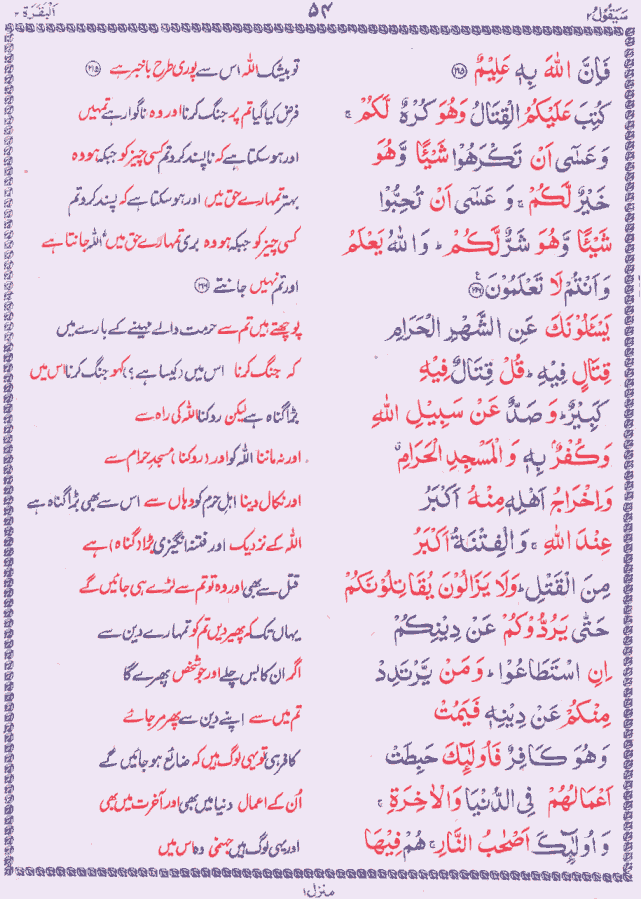 سَيَقُوْلُ ٢ ٥٤ اَلْبَقَرَة ٢
فَاِنَّ اللّٰهَ بِهٖ عَلِيْمٌ ﴿٢١٥﴾ تو بیشک اللہ اس سے پوری طرح باخبر ہے ﴿٢١٥﴾
كُتِبَ عَلَيْكُمُ الْقِتَالُ وَهُوَ كُرْهٌ لَّكُمْ ۚ فرض کیا گیا تم پر جنگ کرنا اور وہ ناگوار ہے تمہیں
وَعَسٰٓى اَنْ تَكْرَهُوْا شَيْئًا وَّهُوَ اور ہو سکتا ہے کہ ناپسند کرو تم کسی چیز کو جبکہ ہو وہ
خَيْرٌ لَّكُمْ ۚ وَ عَسٰٓى اَنْ تُحِبُّوْا بہتر تمہارے حق میں اور ہو سکتا ہے کہ پسند کرو تم
شَيْئًا وَّهُوَ شَرٌّ لَّكُمْ ؕ وَاللّٰهُ يَعْلَمُ کسی چیز کو جبکہ ہو وہ بری تمہارے حق میں، اللہ جانتا ہے
وَاَنْتُمْ لَا تَعْلَمُوْنَ ﴿٢١٦﴾ ع اور تم نہیں جانتے ﴿٢١٦﴾
يَسْـَٔلُوْنَكَ عَنِ الشَّهْرِ الْحَرَامِ پوچھتے ہیں تم سے حرمت والے مہینے کے بارے میں
قِتَالٍ فِيْهِ ؕ قُلْ قِتَالٌ فِيْهِ کہ جنگ کرنا اس میں (کیسا ہے؟) کہو جنگ کرنا اس میں
كَبِيْرٌ ؕ وَصَدٌّ عَنْ سَبِيْلِ اللّٰهِ بڑا گناہ ہے لیکن روکنا اللہ کی راہ سے
وَكُفْرٌۢ بِهٖ وَالْمَسْجِدِ الْحَرَامِ ۗ اور نہ ماننا اللہ کو اور (روکنا) مسجد حرام سے
وَاِخْرَاجُ اَهْلِهٖ مِنْهُ اَكْبَرُ اور نکال دینا اہل حرم کو وہاں سے اس سے بھی بڑا گناہ ہے
عِنْدَ اللّٰهِ ۚ وَالْفِتْنَةُ اَكْبَرُ اللہ کے نزدیک اور فتنہ انگیزی بڑا (گناہ) ہے
مِنَ الْقَتْلِ ؕ وَلَا يَزَالُوْنَ يُقَاتِلُوْنَكُمْ قتل سے بھی اور وہ تو تم سے لڑے ہی جائیں گے
حَتّٰى يَرُدُّوْكُمْ عَنْ دِيْنِكُمْ یہاں تک کہ پھیر دیں تم کو تمہارے دین سے
اِنِ اسْتَطَاعُوْا ؕ وَمَنْ يَّرْتَدِدْ اگر ان کا بس چلے اور جو شخص پھرے گا
مِنْكُمْ عَنْ دِيْنِهٖ فَيَمُتْ تم میں سے اپنے دین سے پھر مر جائے
وَهُوَ كَافِرٌ فَاُولٰٓئِكَ حَبِطَتْ کافر ہی تو یہی لوگ ہیں کہ ضائع ہو جائیں گے
اَعْمَالُهُمْ فِى الدُّنْيَا وَالْاٰخِرَةِ ۚ اُن کے اعمال دنیا میں بھی اور آخرت میں بھی
وَاُولٰٓئِكَ اَصْحٰبُ النَّارِ ۚ هُمْ فِيْهَا اور یہی لوگ ہیں جہنمی وہ اس میں
منزل ١